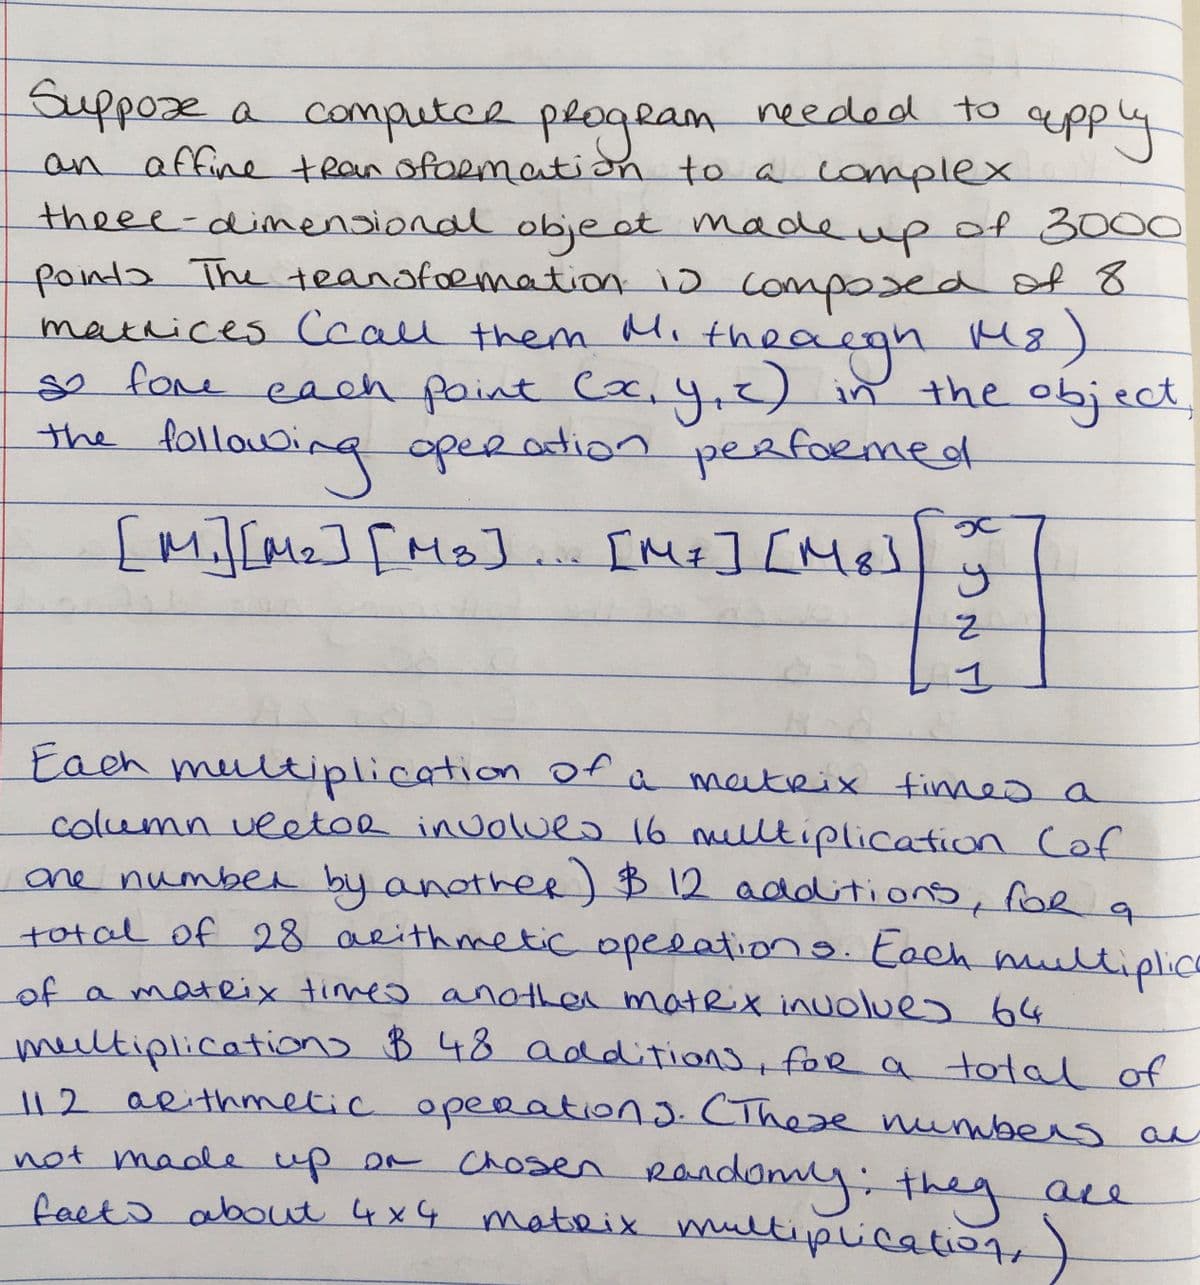 Suppose a computer program needed to apply
an affine transformation to a complex
three-dimensional object made up of 3000
points The transformation is composed of 8
matrices (call them M₁ through M8)
so fore each point (x, y, z) in the object,
the following operation performed
[M₁][M2][M3] ... [M7][M8][x
y
z
1]
Each multiplication of a matrix times a
column vector involves 16 multiplication (of
one number by another) & 12 additions, for a
total of 28 arithmetic operations. Each multiplic
of a matrix times another matrix involves 64
multiplications & 48 additions, for a total of
112 arithmetic operations. (These numbers ar
not made up or chosen randomy; they are
facts about 4x4 matrix multiplication,)